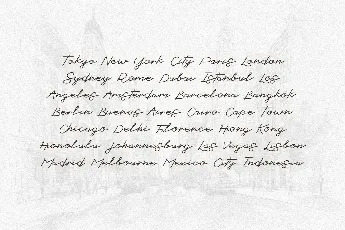 Tokyo New York City Paris London
Sydney Rome Dubai Istanbul Los
Angeles Amsterdam Barcelona Bangkok
Berlin Buenos Aires Cairo Cape Town
Chicago Delhi Florence Hong Kong
Honolulu Johannesburg Las Vegas Lisbon
Madrid Melbourne Mexico City Indonesia